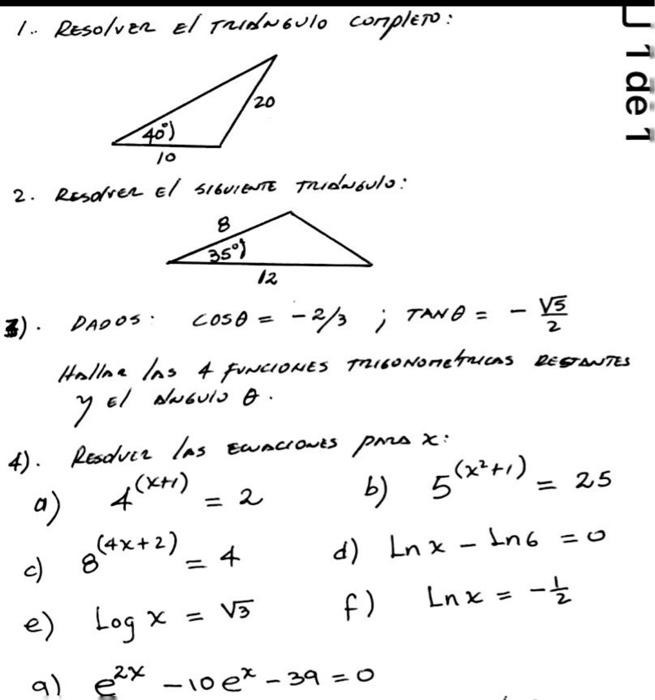 1.. Resolver el triángulo completo:
20
40°
10
2. Resolver el siguiente triángulo:
8
35°
12
3). Dados: cosθ = -2/3 ; TANθ = - √5/2
Hallar las 4 funciones trigonométricas restantes
y el ángulo θ.
4). Resolver las ecuaciones para x:
a) 4^(x+1) = 2
b) 5^(x²+1) = 25
c) 8^(4x+2) = 4
d) Ln x - Ln 6 = 0
e) Log x = √3
f) Ln x = - 1/2
g) e^2x - 10e^x - 39 = 0
1 de 1